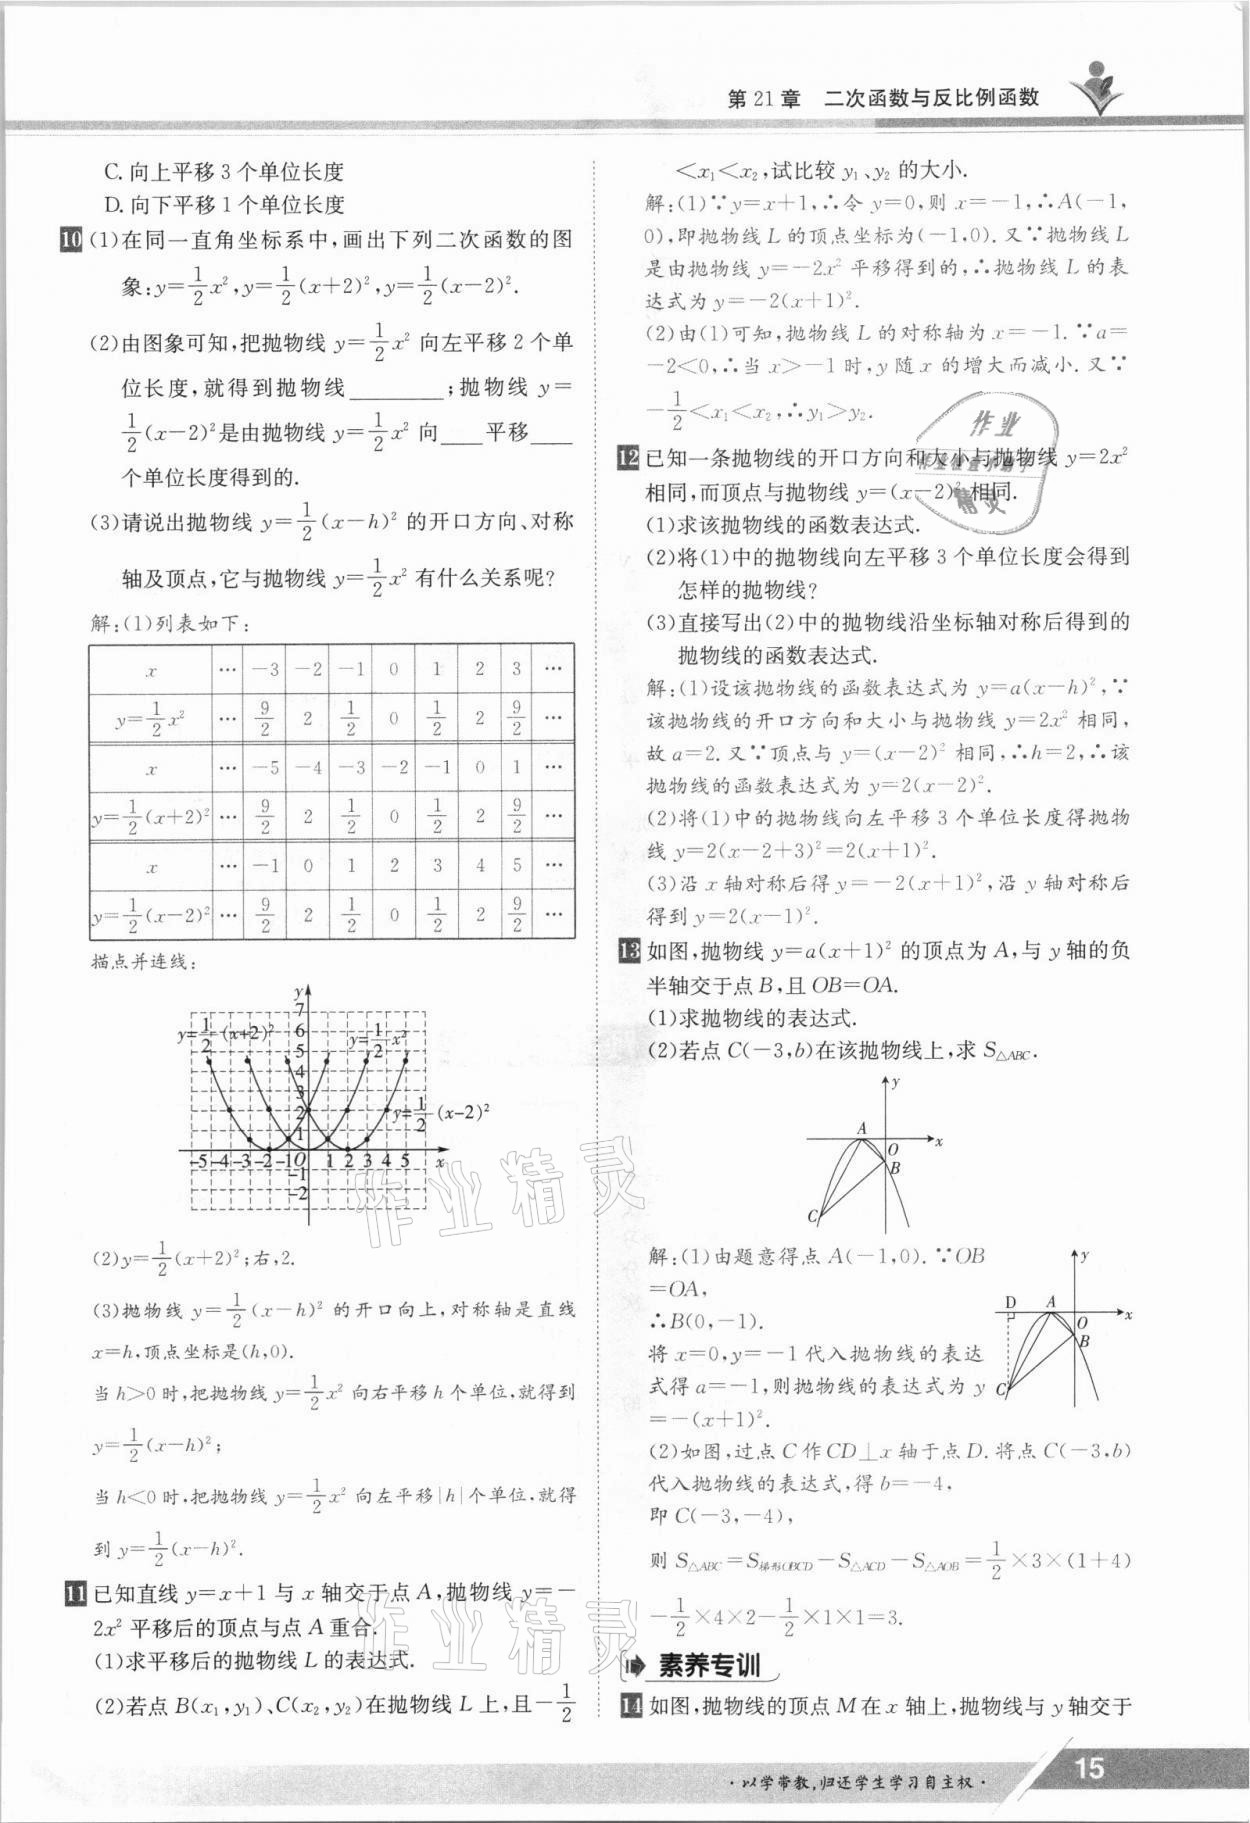 第 21 章 二次函数与反比例函数
C. 向上平移 3 个单位长度
D. 向下平移 1 个单位长度
10 (1)在同一直角坐标系中,画出下列二次函数的图
象:y=1/2x²,y=1/2(x+2)²,y=1/2(x-2)².
(2)由图象可知,把抛物线 y=1/2x² 向左平移 2 个单
位长度,就得到抛物线________;抛物线 y=
1/2(x-2)²是由抛物线 y=1/2x² 向___平移___
个单位长度得到的.
(3)请说出抛物线 y=1/2(x-h)² 的开口方向、对称
轴及顶点,它与抛物线 y=1/2x² 有什么关系呢?
解:(1)列表如下:
x … -3 -2 -1 0 1 2 3 …
y=1/2x² … 9/2 2 1/2 0 1/2 2 9/2 …
x … -5 -4 -3 -2 -1 0 1 …
y=1/2(x+2)² … 9/2 2 1/2 0 1/2 2 9/2 …
x … -1 0 1 2 3 4 5 …
y=1/2(x-2)² … 9/2 2 1/2 0 1/2 2 9/2 …
描点并连线:
y
7
6
5
4
3
2
1
y=1/2(x+2)²
y=1/2x²
y=1/2(x-2)²
-5 -4 -3 -2 -1 O 1 2 3 4 5 x
-1
-2
(2)y=1/2(x+2)²;右,2.
(3)抛物线 y=1/2(x-h)² 的开口向上,对称轴是直线
x=h,顶点坐标是(h,0).
当 h>0 时,把抛物线 y=1/2x² 向右平移 h 个单位,就得到
y=1/2(x-h)²;
当 h<0 时,把抛物线 y=1/2x² 向左平移|h|个单位,就得
到 y=1/2(x-h)².
11 已知直线 y=x+1 与 x 轴交于点 A,抛物线 y=-
2x² 平移后的顶点与点 A 重合.
(1)求平移后的抛物线 L 的表达式.
(2)若点 B(x₁,y₁)、C(x₂,y₂)在抛物线 L 上,且-1/2
<x₁<x₂,试比较 y₁、y₂ 的大小.
解:(1)∵y=x+1,∴令 y=0,则 x=-1,∴A(-1,
0),即抛物线 L 的顶点坐标为(-1,0). 又∵抛物线 L
是由抛物线 y=-2x² 平移得到的,∴抛物线 L 的表
达式为 y=-2(x+1)².
(2)由(1)可知,抛物线 L 的对称轴为 x=-1. ∵a=
-2<0,∴当 x>-1 时,y 随 x 的增大而减小. 又∵
-1/2<x₁<x₂,∴y₁>y₂.
12 已知一条抛物线的开口方向和大小与抛物线 y=2x²
相同,而顶点与抛物线 y=(x-2)² 相同.
(1)求该抛物线的函数表达式.
(2)将(1)中的抛物线向左平移 3 个单位长度会得到
怎样的抛物线?
(3)直接写出(2)中的抛物线沿坐标轴对称后得到的
抛物线的函数表达式.
解:(1)设该抛物线的函数表达式为 y=a(x-h)²,∵
该抛物线的开口方向和大小与抛物线 y=2x² 相同,
故 a=2. 又∵顶点与 y=(x-2)² 相同,∴h=2,∴该
抛物线的函数表达式为 y=2(x-2)².
(2)将(1)中的抛物线向左平移 3 个单位长度得抛物
线 y=2(x-2+3)²=2(x+1)².
(3)沿 x 轴对称后得 y=-2(x+1)²,沿 y 轴对称后
得到 y=2(x-1)².
13 如图,抛物线 y=a(x+1)² 的顶点为 A,与 y 轴的负
半轴交于点 B,且 OB=OA.
(1)求抛物线的表达式.
(2)若点 C(-3,b)在该抛物线上,求 S△ABC.
y
A
O
x
B
C
解:(1)由题意得点 A(-1,0). ∵OB
=OA,
∴B(0,-1).
将 x=0,y=-1 代入抛物线的表达
式得 a=-1,则抛物线的表达式为 y
=-(x+1)².
y
D A
O
x
B
C
(2)如图,过点 C 作 CD⊥x 轴于点 D. 将点 C(-3,b)
代入抛物线的表达式,得 b=-4,
即 C(-3,-4),
则 S△ABC=S梯形OBCD-S△ACD-S△AOB=1/2×3×(1+4)
-1/2×4×2-1/2×1×1=3.
素养专训
14 如图,抛物线的顶点 M 在 x 轴上,抛物线与 y 轴交于
·以学带教,归还学生学习自主权·
15
作业
精灵
作业精灵
作业精灵